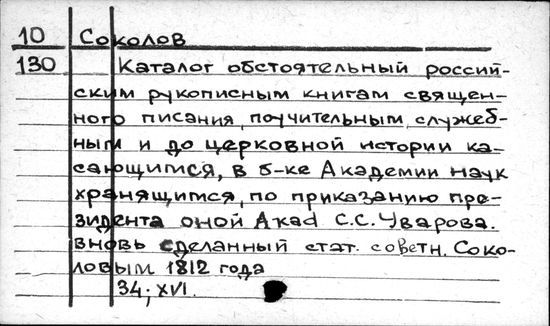 10 Соколов
130 Каталог обстоятельный россий-
ским рукописным книгам священ-
ного писания, поучительным, служеб-
ным и до церковной истории ка-
сающимся, в б-ке Академии наук
хранящимся, по приказанию пре-
зидента оной Акад. С.С. Уварова.
вновь сделанный стат. советн. Соко-
ловым 1812 года
34; XVI.